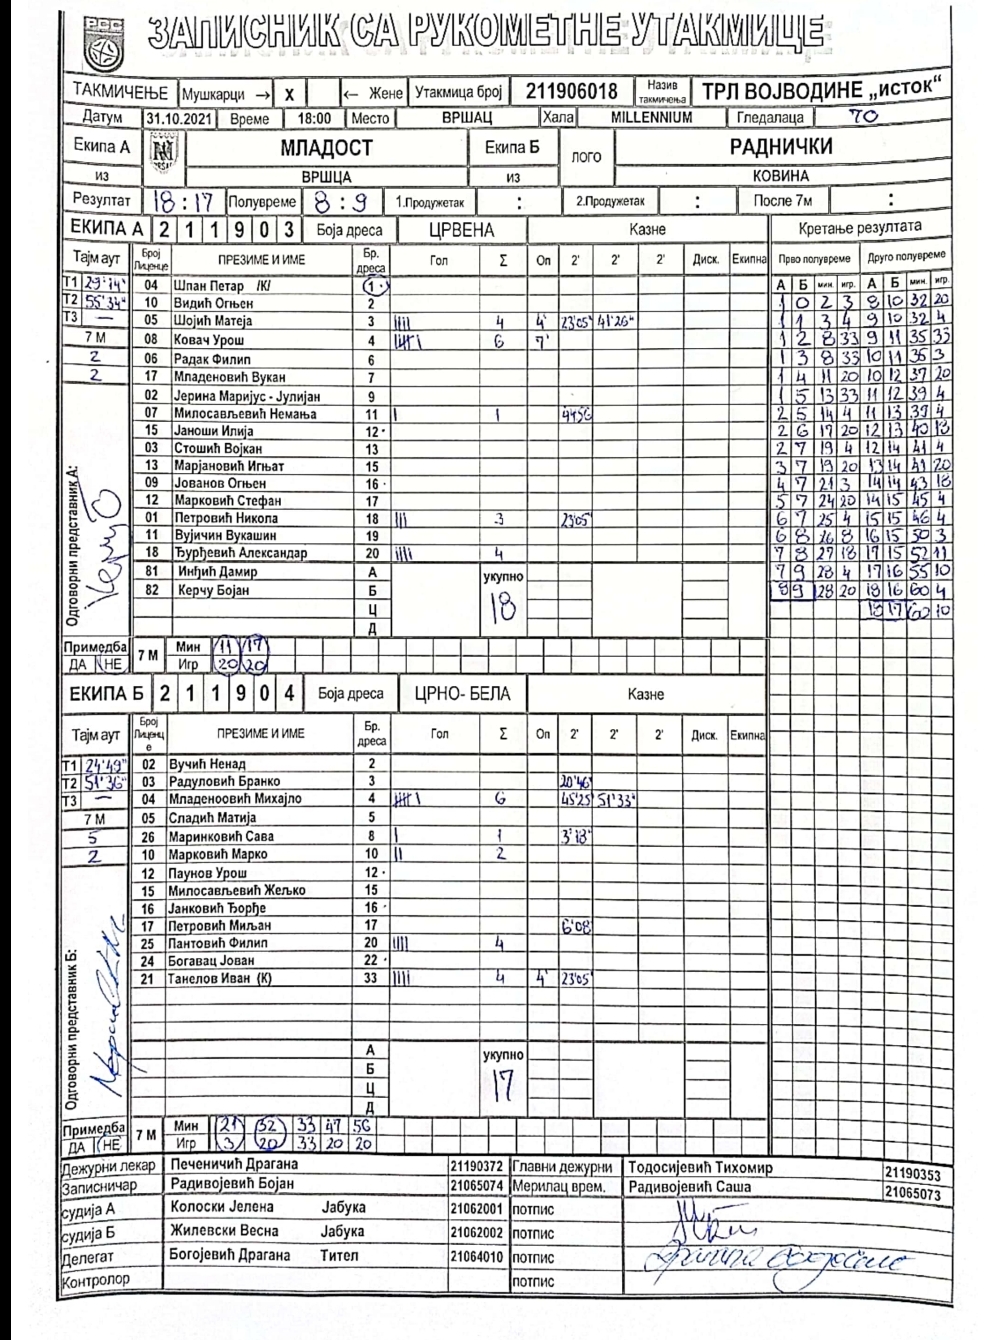 РСС
ЗАПИСНИК СА РУКОМЕТНЕ УТАКМИЦЕ
ТАКМИЧЕЊЕ Мушкарци → X ← Жене Утакмица број 211906018 Назив такмичења ТРЛ ВОЈВОДИНЕ „исток“
Датум 31.10.2021 Време 18:00 Место ВРШАЦ Хала MILLENNIUM Гледалаца 70
Екипа А МЛАДОСТ Екипа Б ЛОГО РАДНИЧКИ
из ВРШЦА из КОВИНА
Резултат 18 : 17 Полувреме 8 : 9 1.Продужетак : 2.Продужетак : После 7м :
ЕКИПА А 2 1 1 9 0 3 Боја дреса ЦРВЕНА Казне Кретање резултата
Тајм аут Број Лиценце ПРЕЗИМЕ И ИМЕ Бр. дреса Гол Σ Оп 2' 2' 2' Диск. Екипна Прво полувреме Друго полувреме
А Б мин. игр. А Б мин. игр.
Т1 29'14" 04 Шпан Петар /К/ 1 ·
Т2 55'34" 10 Видић Огњен 2 1 0 2 3 8 10 32 20
Т3 — 05 Шојић Матеја 3 |||| 4 4' 23'05" 41'26" 1 1 3 4 9 10 32 4
7 М 08 Ковач Урош 4 |||| | 6 7' 1 2 8 33 9 11 35 33
2 06 Радак Филип 6 1 3 8 33 10 11 36 3
2 17 Младеновић Вукан 7 1 4 11 20 10 12 37 20
02 Јерина Маријус - Јулијан 9 1 5 13 33 11 12 39 4
07 Милосављевић Немања 11 | 1 44'56 2 5 14 4 11 13 39 4
15 Јаноши Илија 12 · 2 6 17 20 12 13 40 18
03 Стошић Војкан 13 2 7 19 4 12 14 41 4
13 Марјановић Игњат 15 3 7 19 20 13 14 41 20
09 Јованов Огњен 16 · 4 7 21 3 14 14 43 18
12 Марковић Стефан 17 5 7 24 20 14 15 45 4
01 Петровић Никола 18 ||| 3 23'05" 6 7 25 4 15 15 46 4
11 Вујичин Вукашин 19 6 8 26 8 16 15 50 3
18 Ђурђевић Александар 20 |||| 4 7 8 27 18 17 15 52 11
81 Инђић Дамир А укупно 7 9 28 4 17 16 55 10
82 Керчу Бојан Б 18 8 9 28 20 18 16 60 4
Ц 18 17 60 10
Д
Одговорни представник А:
Примедба ДА НЕ 7 М Мин 11 17
Игр 20 20
ЕКИПА Б 2 1 1 9 0 4 Боја дреса ЦРНО- БЕЛА Казне
Тајм аут Број Лиценце ПРЕЗИМЕ И ИМЕ Бр. дреса Гол Σ Оп 2' 2' 2' Диск. Екипна
Т1 24'49" 02 Вучић Ненад 2
Т2 51'36" 03 Радуловић Бранко 3 20'46"
Т3 — 04 Младеноовић Михајло 4 |||| | 6 45'25" 51'33"
7 М 05 Сладић Матија 5
5 26 Маринковић Сава 8 | 1 3'18"
2 10 Марковић Марко 10 || 2
12 Паунов Урош 12 ·
15 Милосављевић Жељко 15
16 Јанковић Ђорђе 16 ·
17 Петровић Миљан 17 6'08"
25 Пантовић Филип 20 |||| 4
24 Богавац Јован 22 ·
21 Танелов Иван (К) 33 |||| 4 4' 23'05"
А укупно
Б 17
Ц
Д
Одговорни представник Б:
Примедба ДА НЕ 7 М Мин 21 32 33 47 56
Игр 3 20 33 20 20
Дежурни лекар Печеничић Драгана 21190372 Главни дежурни Тодосијевић Тихомир 21190353
Записничар Радивојевић Бојан 21065074 Мерилац врем. Радивојевић Саша 21065073
судија А Колоски Јелена Јабука 21062001 потпис
судија Б Жилевски Весна Јабука 21062002 потпис
Делегат Богојевић Драгана Тител 21064010 потпис
Контролор потпис